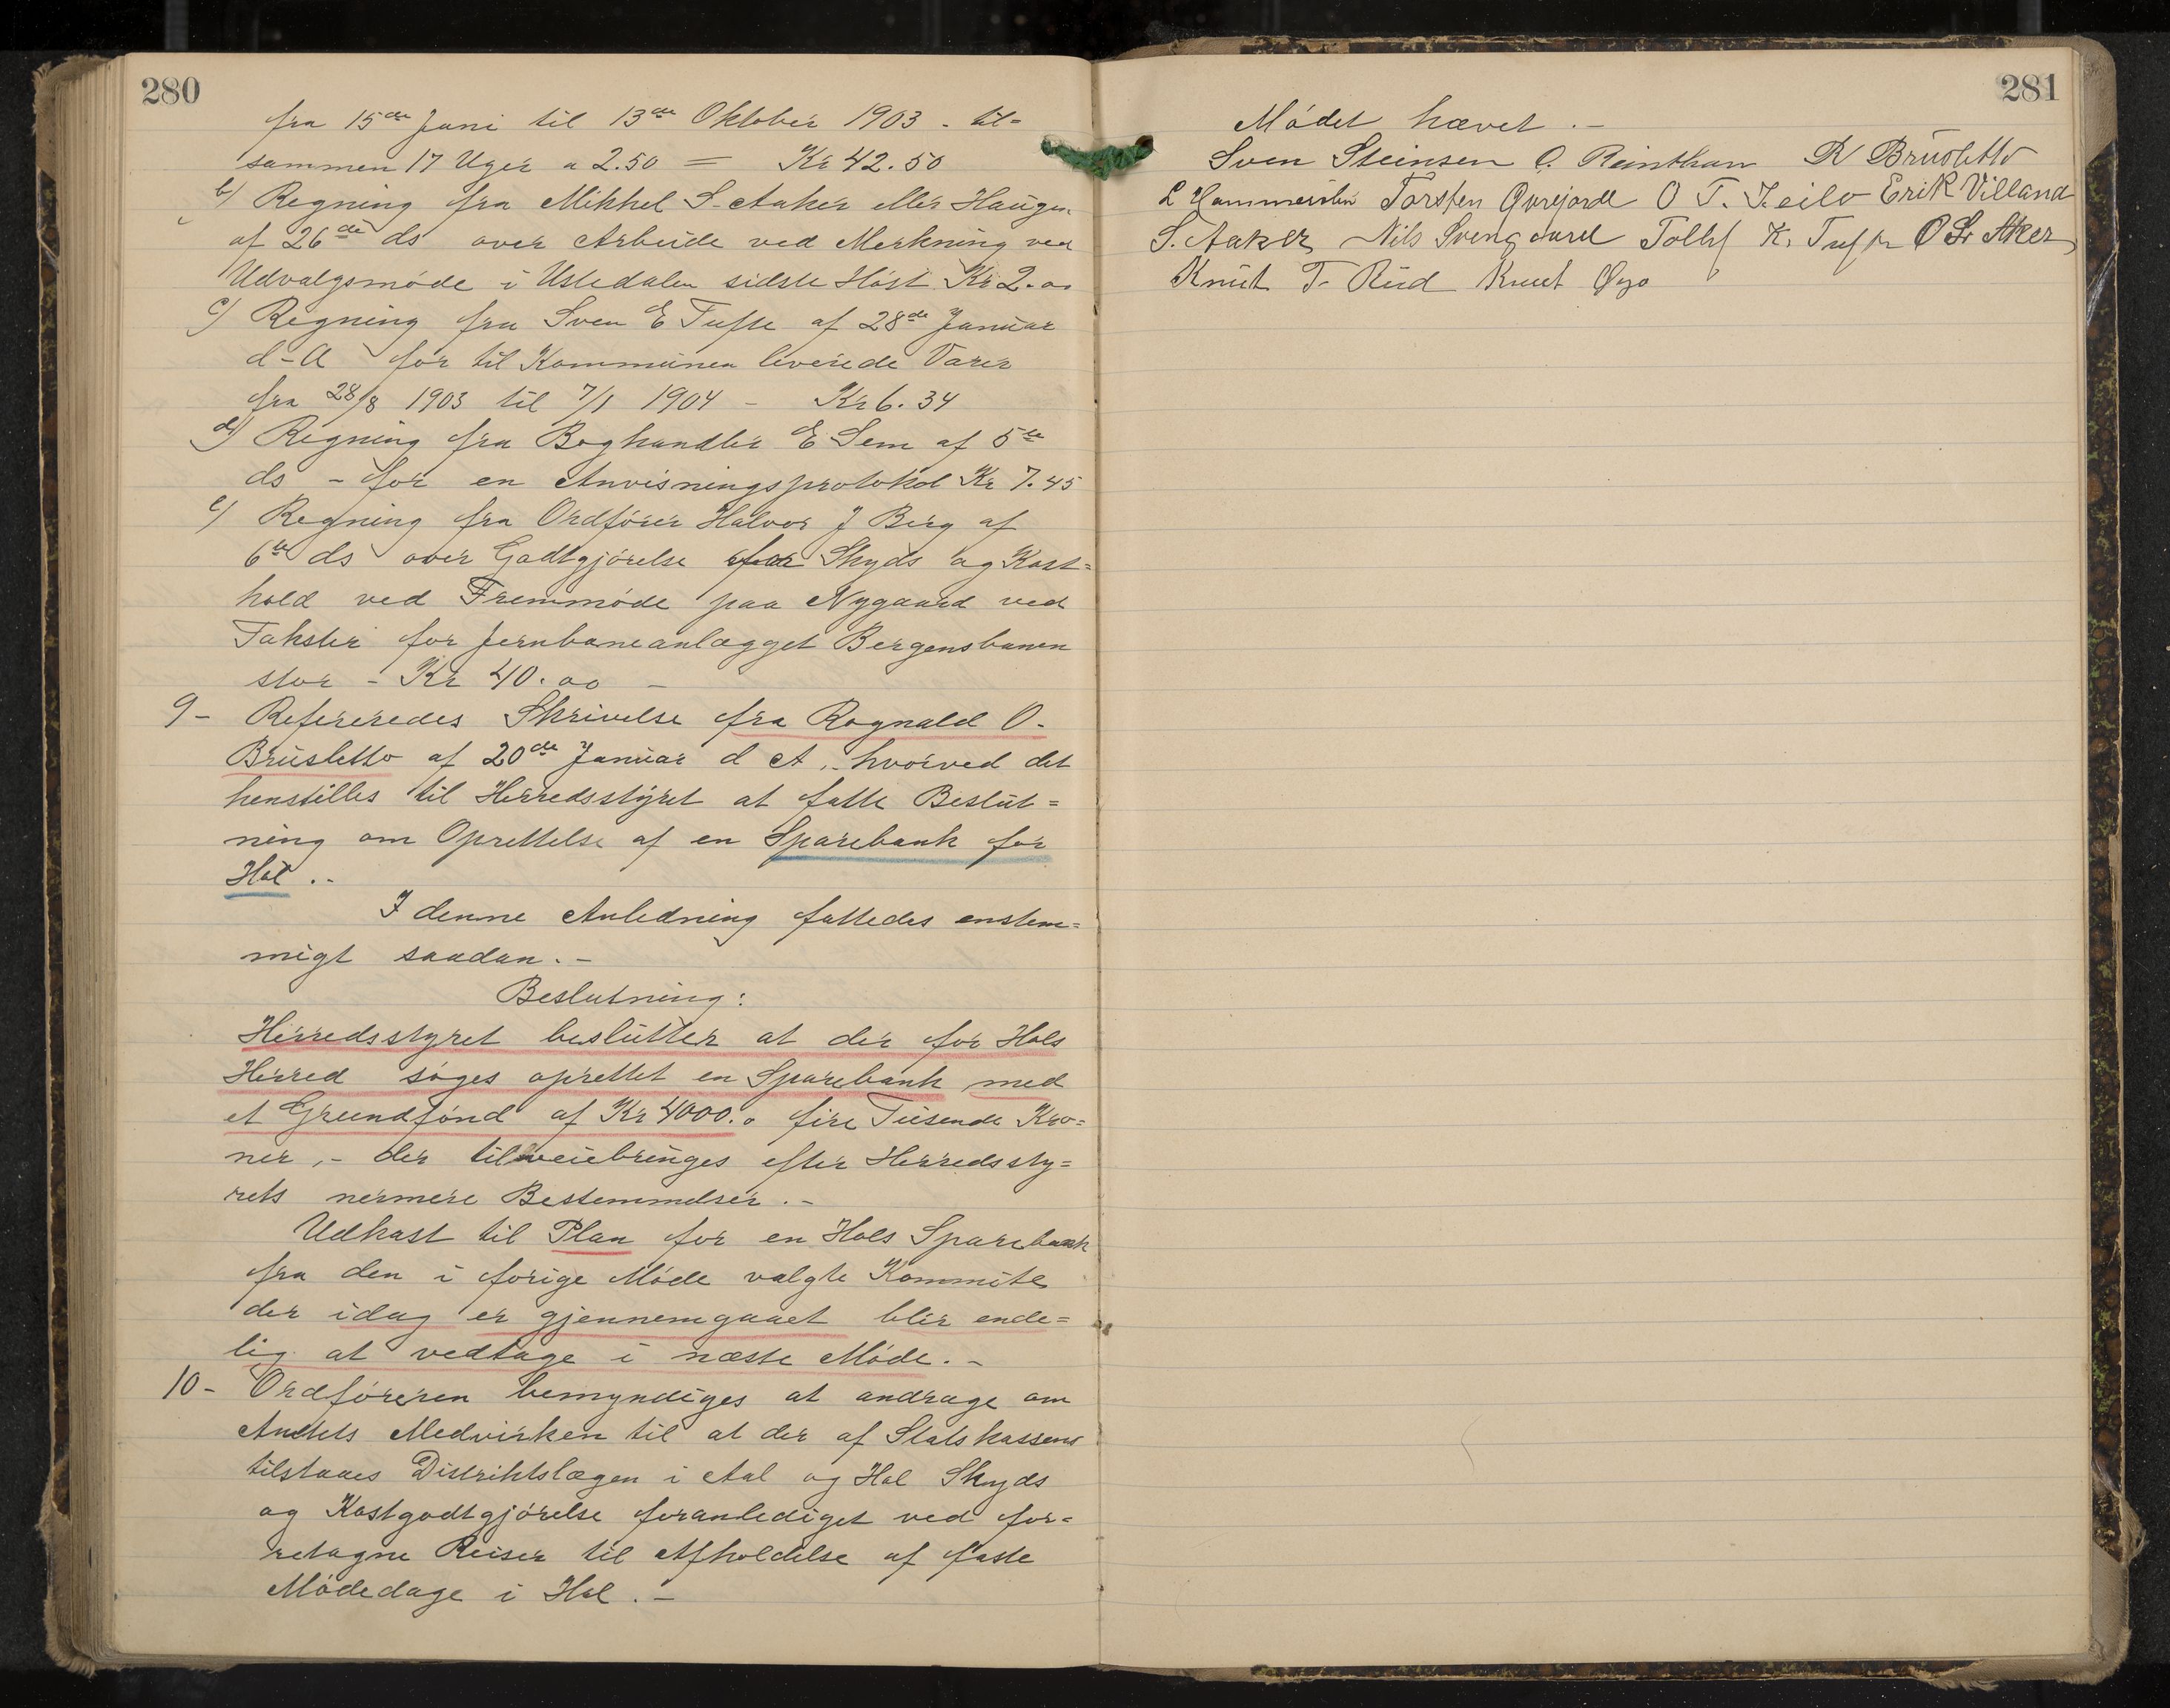 280
fra 15de Juni til 13de Oktober 1903 - til=
sammen 17 Uger a 2.50 = Kr 42.50
b) Regning fra Mikkel S. Aaker eller Haugen
af 26de ds over Arbeide ved Merkning ved
Udvalgsmøde i Ustedalen sidste Høst Kr 2.00
c) Regning fra Sven E Tufte af 28de Januar
d-A for til Kommunen leverede Varer
fra 28/8 1903 til 7/1 1904 - Kr 6.34
d) Regning fra Boghandler E Sem af 5te
ds - for en Anvisningsprotokol Kr 7.45
e) Regning fra Ordfører Halvor J Berg af
6te ds over Godtgjørelse for Skyds og Kost=
hold ved Fremmøde paa Nygaard ved
Takster for Jernbaneanlægget Bergensbanen
stor - Kr 40.00 -
9- Refereredes Skrivelse fra Rognald O.
Brusletto af 20de Januar d A, - hvorved det
henstilles til Herredsstyret at fatte Beslut=
ning om Oprettelse af en Sparebank for
Hol .-
I denne Anledning fattedes enstem=
migt saadan. -
Beslutning:
Herredsstyret beslutter at der for Hols
Herred søges oprettet en Sparebank med
et Grundfond af Kr 4000.0 fire Tusende Kro=
ner, - der tilveiebringes efter Herredssty=
rets nermere Bestemmelser. -
Udkast til Plan for en Hols Sparebank
fra den i forige Møde valgte Kommite
der idag er gjennemgaaet blir ende=
lig at vedtage i næste Møde. -
10- Ordføreren bemyndiges at andrage om
Amtets Medvirken til at der af Statskassens
tilstaaes Distriktslægen i Aal og Hol Skyds
og Kostgodtgjørelse foranlediget ved for=
retagne Reiser til Afholdelse af faste
Mødedage i Hol. -
281
Mødet hævet. -
Sven Steinsen O. Reinthon R Brusletto
L Hammersbøen Torsten Øvrejorde O T. Jeilo Erik Villand
S. Aaker Nils Svengaard Tollef K. Tufte O Sr Aker
Knut T. Rud Knut Øyo